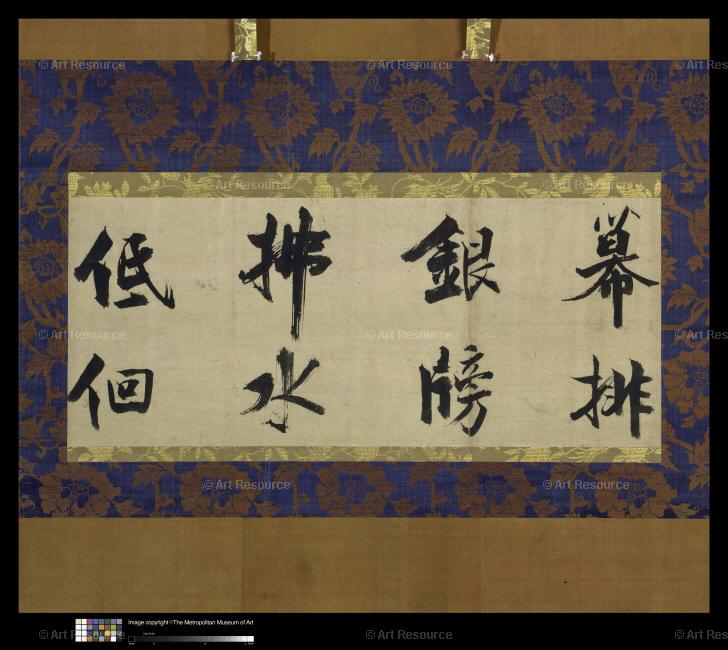 幕排
銀牓
拂水
低佪
© Art Resource
© Art Resource
© Art Reso
© Art Resource
© Art Resource
© Art Resource
© Art Resource
© Art Reso
© Art Resource
© Art Resource
Image copyright ©The Metropolitan Museum of Art
© Art Resource
© Art Resource
© Art Reso